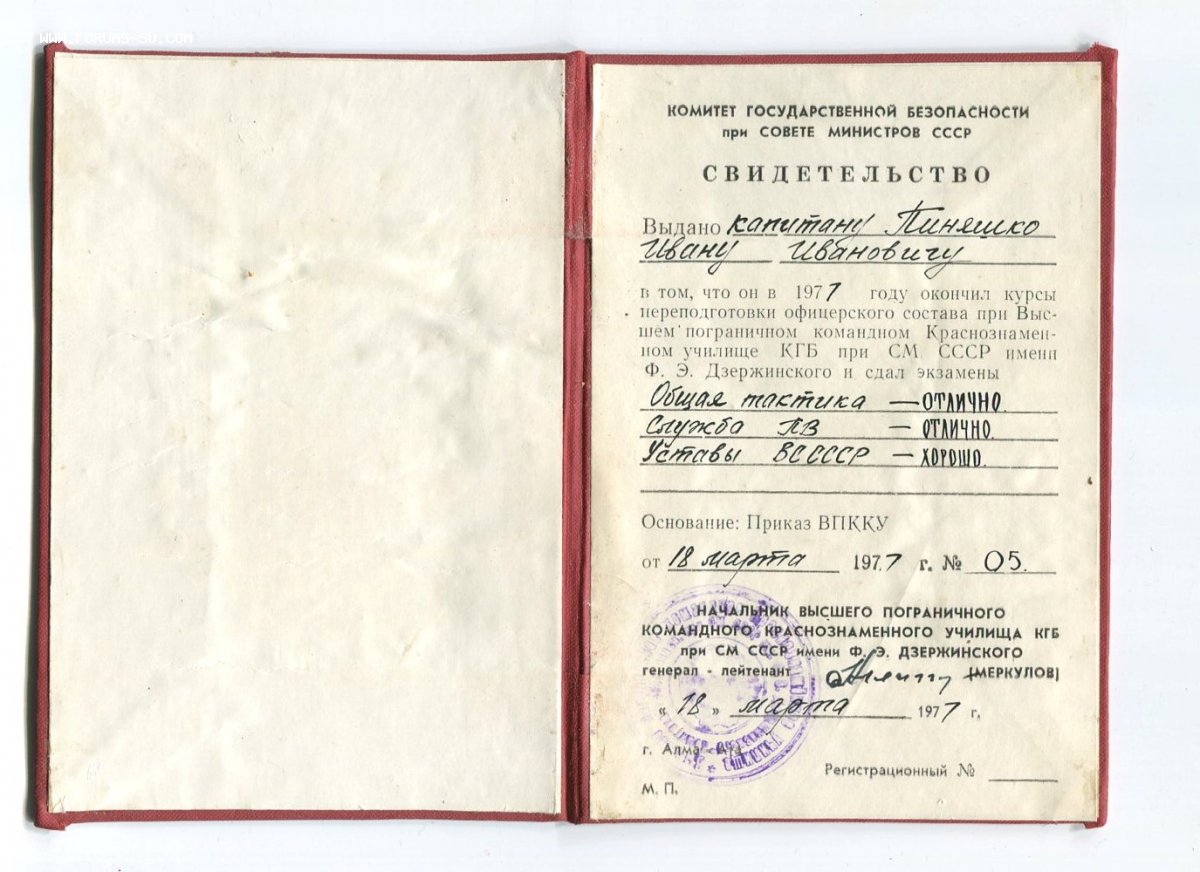 WWW.FORUMS-SU.COM
КОМИТЕТ ГОСУДАРСТВЕННОЙ БЕЗОПАСНОСТИ
при СОВЕТЕ МИНИСТРОВ СССР
СВИДЕТЕЛЬСТВО
Выдано капитану Пиняшко
Ивану Ивановичу
в том, что он в 1977 году окончил курсы
переподготовки офицерского состава при Выс-
шем пограничном командном Краснознамен-
ном училище КГБ при СМ СССР имени
Ф. Э. Дзержинского и сдал экзамены
Общая тактика — ОТЛИЧНО.
Служба ПВ — ОТЛИЧНО.
Уставы ВС СССР — ХОРОШО.
Основание: Приказ ВПККУ
от 18 марта 1977 г. № 05.
НАЧАЛЬНИК ВЫСШЕГО ПОГРАНИЧНОГО
КОМАНДНОГО КРАСНОЗНАМЕННОГО УЧИЛИЩА КГБ
при СМ СССР имени Ф. Э. ДЗЕРЖИНСКОГО
генерал - лейтенант (МЕРКУЛОВ)
« 18 » марта 1977 г.
г. Алма-Ата
Регистрационный №
М. П.